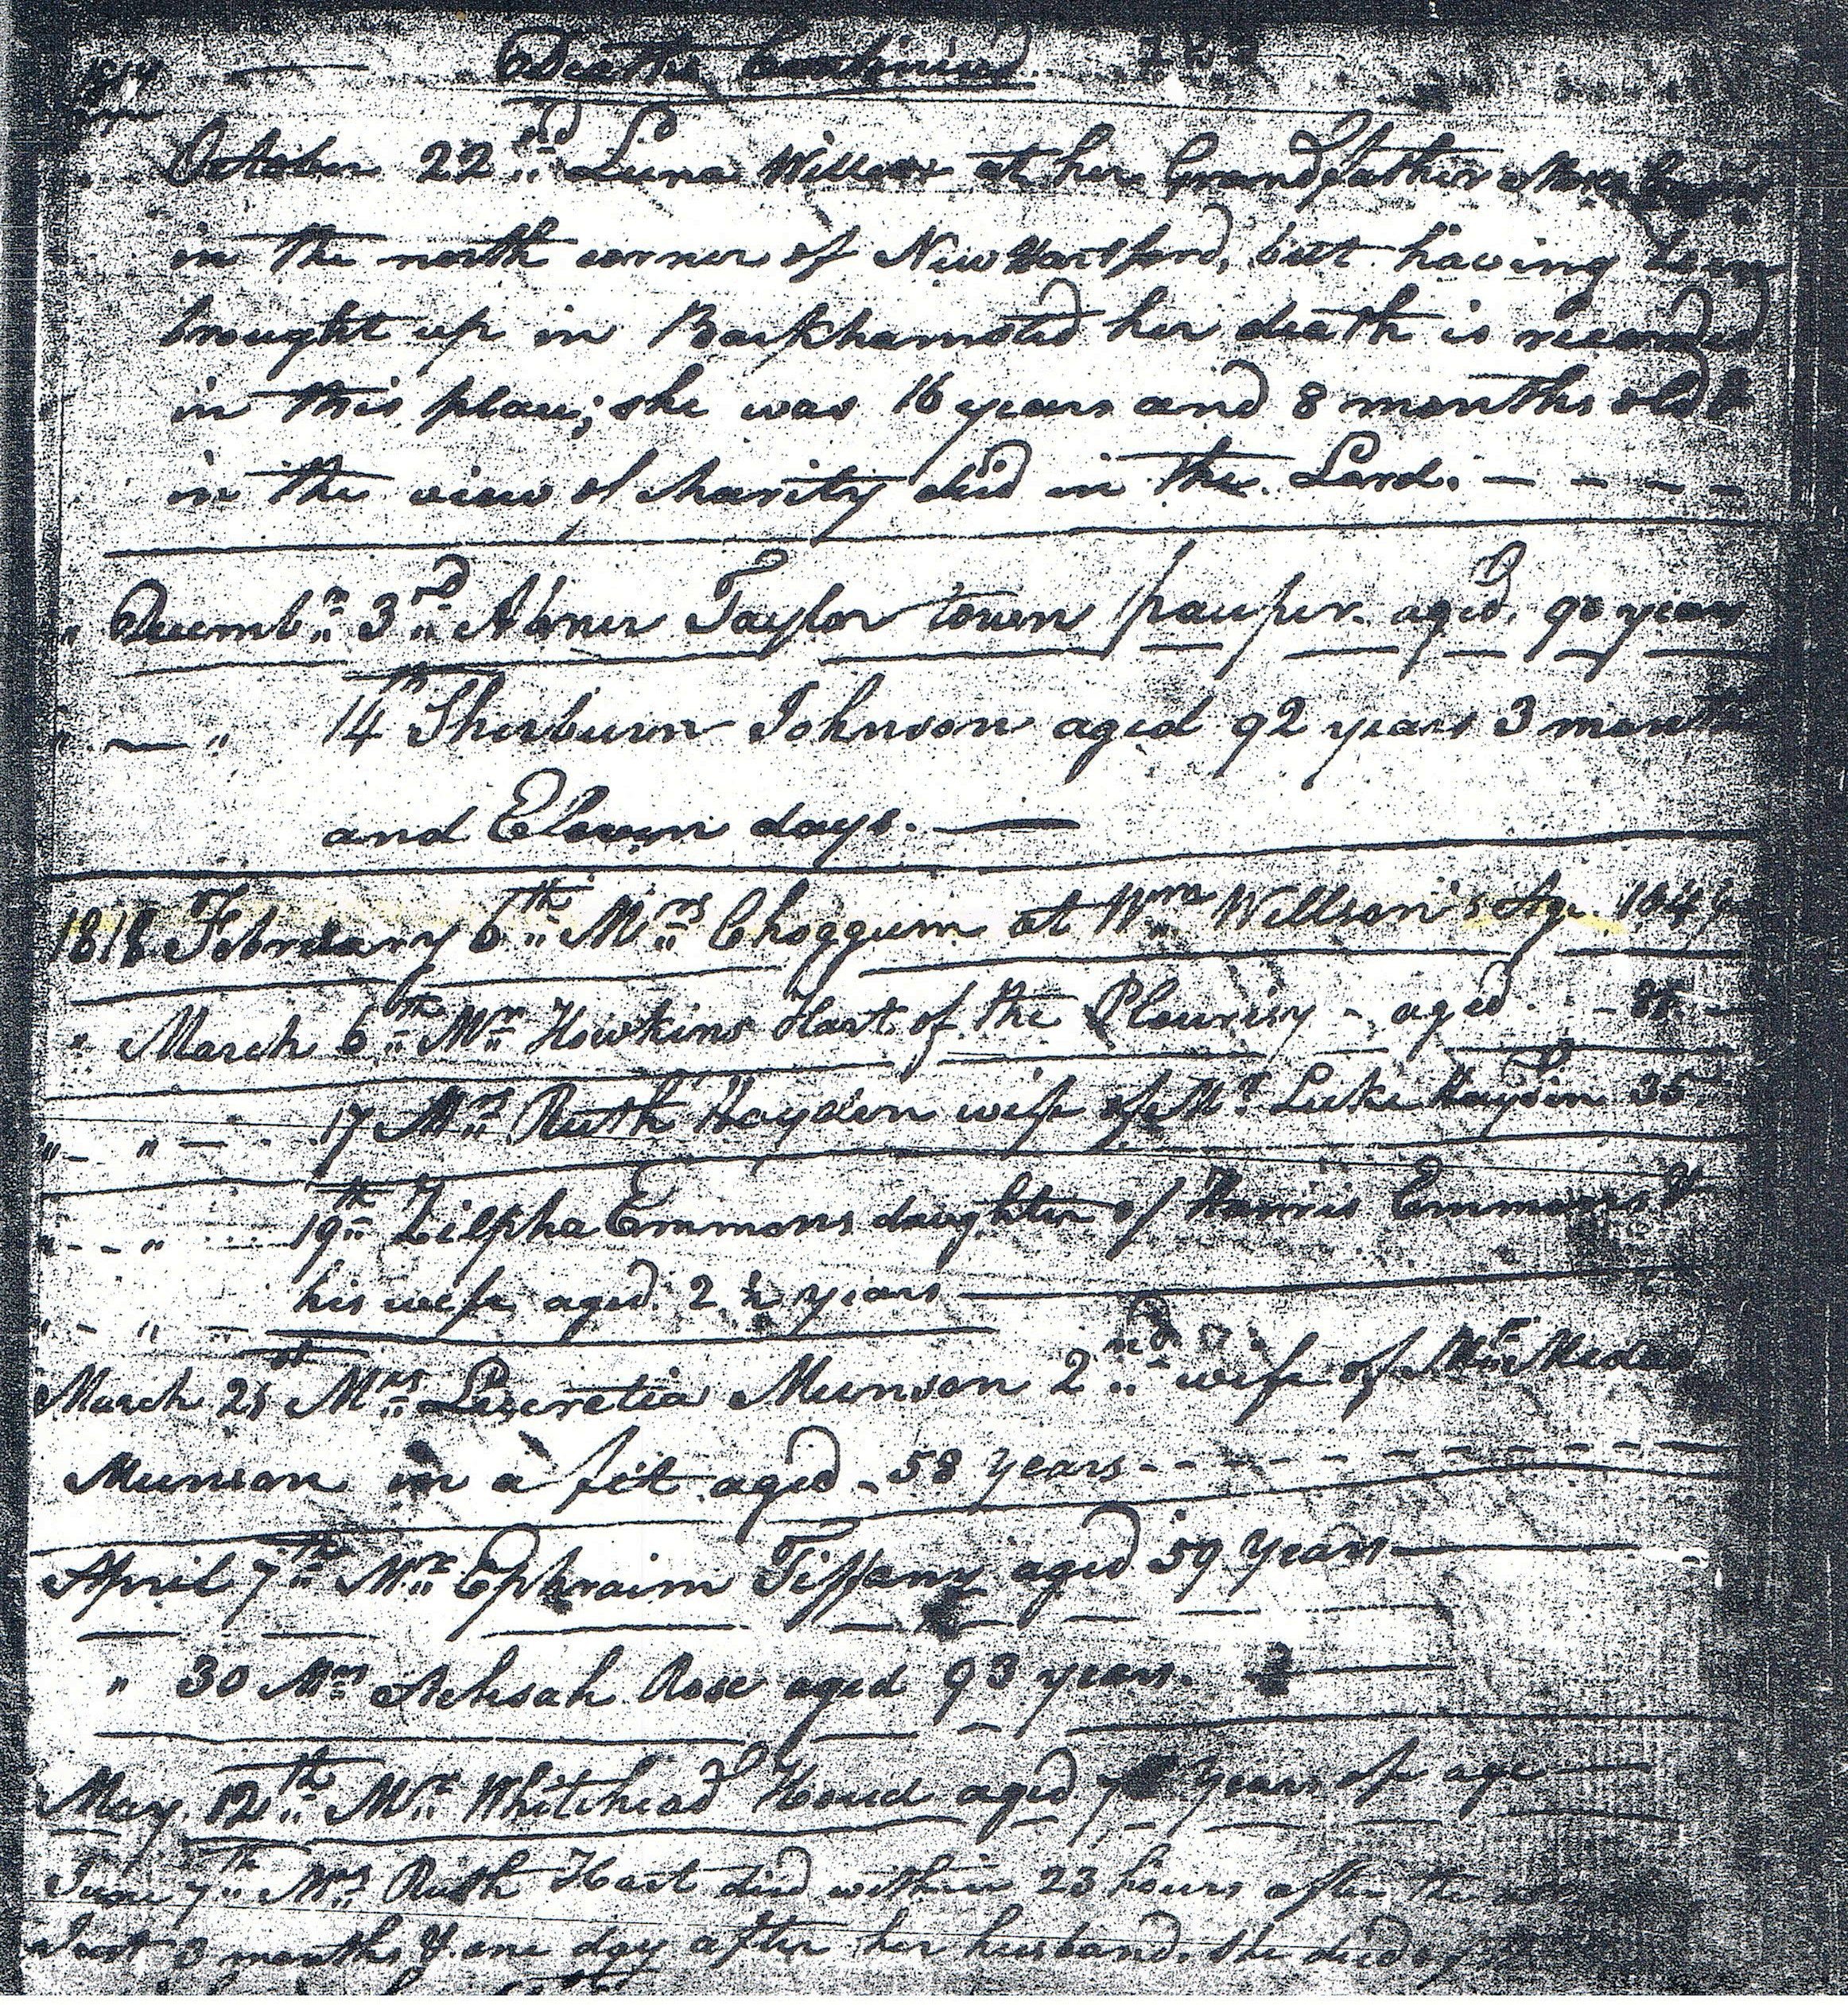 Deaths Continued.
October 22nd Luna Willcox at her Grandfather Moses
in the north corner of New Hartford, but having been
brought up in Barkhamsted her death is recorded
in this place; she was 16 years and 8 months old &
in the view of charity died in the Lord. - - - -
" Decembr 3rd Abner Taylor town pauper. aged. 90 years
" — " 14th Sherburn Johnson aged 92 years 3 months
and Eleven days. —
1818 February 6th Mrs Choggum at Wm Willson's Age 104
" March 6th Mr Hawkins Hart of the Pleurisy - aged
" - " - 17 Mrs Ruth Hayden wife of Mr Luke Hayden 35
" - - " 19th Zilpha Emmons daughter of Emmons &
" - " - his wife aged. 2 ½ years —
March 21st Mrs Lucretia Munson 2nd wife of
Munson in a fit aged - 58 years - - - -
April 7th Mr Ephraim Tiffany aged 59 Years —
" 30 Mrs Achsah Rose aged 93 years.
May 12th Mr Whitehead aged years of age —
June 7th Mrs Ruth Hart died within 23 hours after the
Just 3 months & one day after her husband. she died